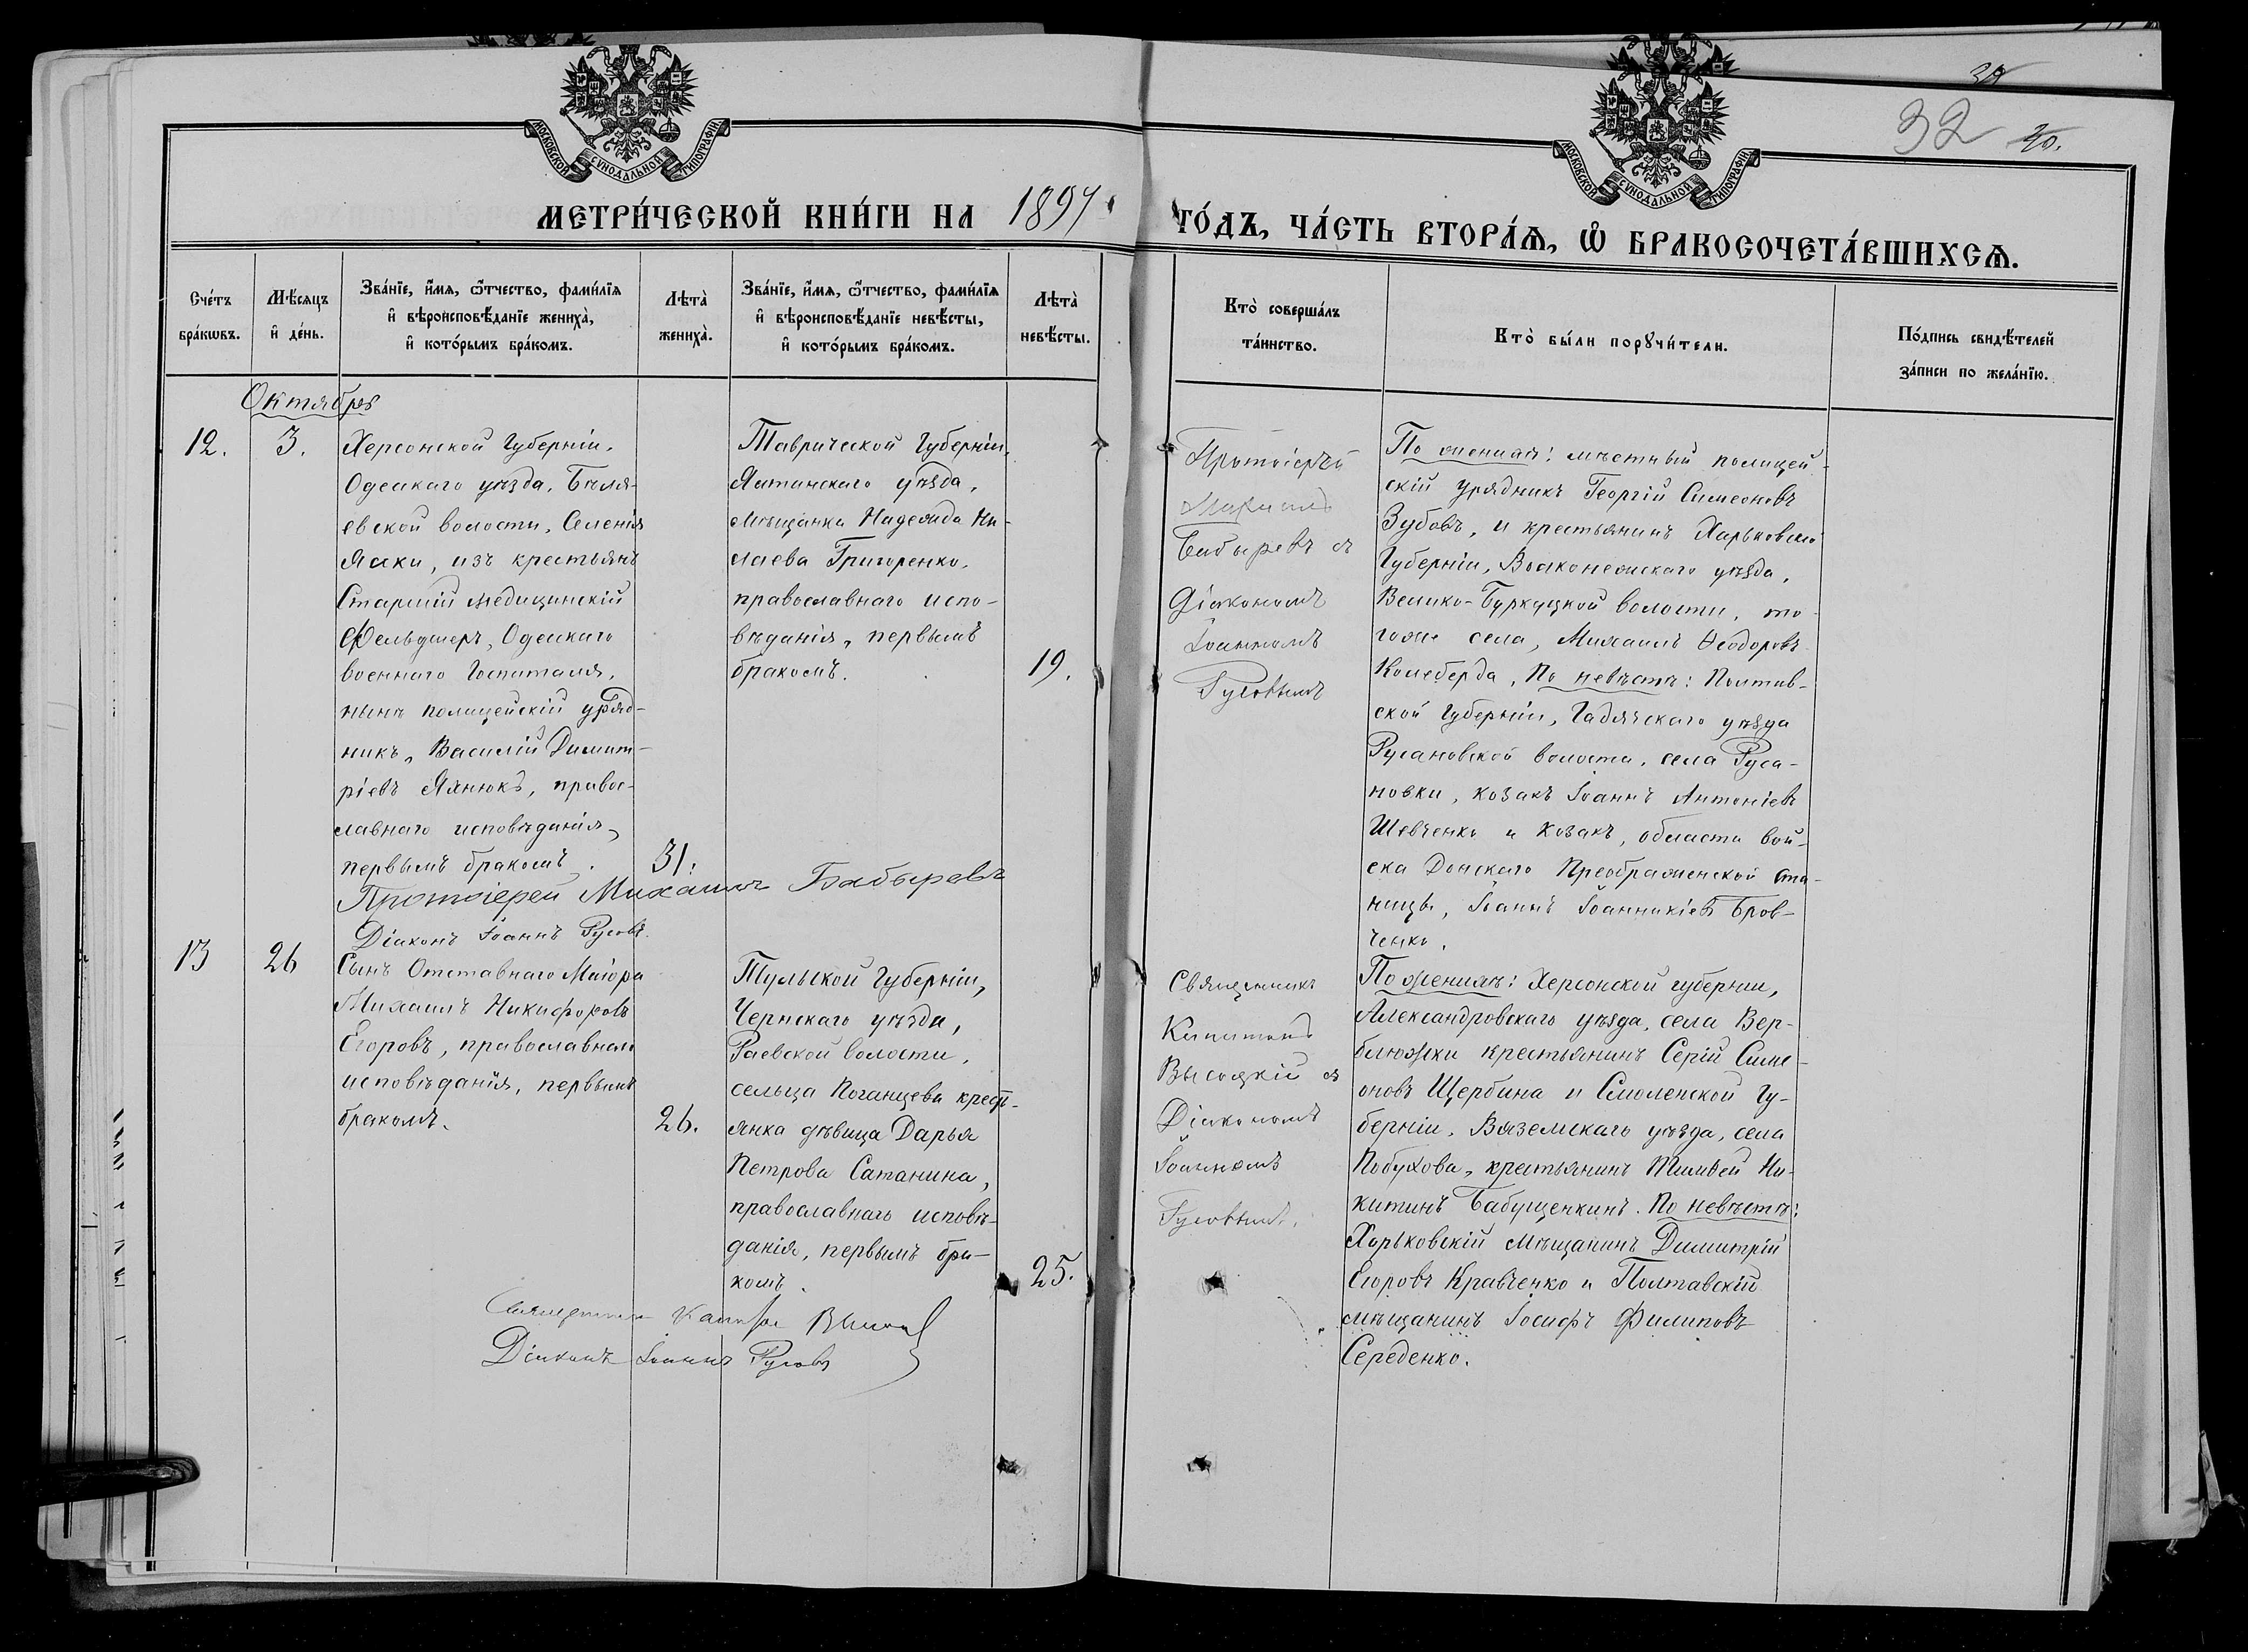 МОСКОВСКОЙ СѴНОДАЛЬНОЙ ТИПОГРАФІИ.
МОСКОВСКОЙ СѴНОДАЛЬНОЙ ТИПОГРАФІИ.
32
МЕТРИ́ЧЕСКОЙ КНИ́ГИ НА 1897
ГО́ДЪ, ЧА́СТЬ ВТОРА́Ѧ, Ѡ҆ БРАКОСОЧЕТА́ВШИХСѦ.
Сче́тъ
бра́кѡвъ.
Мѣ́сѧцъ
и҆ де́нь.
Зва́нїе, и҆́мѧ, ѻ҆́тчество, фами́лїѧ
и҆ вѣроисповѣ́данїе жениха̀,
и҆ кото́рымъ бра́комъ.
Лѣта̀
жениха̀.
Зва́нїе, и҆́мѧ, ѻ҆́тчество, фами́лїѧ
и҆ вѣроисповѣ́данїе невѣ́сты,
и҆ кото́рымъ бра́комъ.
Лѣта̀
невѣ́сты.
Кто̀ соверша́лъ
та́инство.
Кто̀ бы́ли порꙋчи́тели.
По́дпись свидѣ́телей
за́писи по жела́нїю.
Октября
12.
3.
Херсонской Губерніи,
Одескаго уѣзда, Бѣля-
евской волости, Селенія
Яски, изъ крестьянъ
Старшій медицинскій
Фельдшеръ, Одескаго
военнаго Госпиталя,
нынѣ полицейскій уряд-
никъ, Василій Димит-
ріевъ Яхнюкъ, правос-
лавнаго исповѣданія,
первымъ бракомъ.
31.
Таврической Губерніи,
Ялтинскаго уѣзда,
мѣщанка Надежда Ни-
лаева Григоренко,
православнаго испо-
вѣданія, первымъ
бракомъ.
19.
Протоіерей
Михаилъ
Бабыревъ съ
Діакономъ
Іоанномъ
Русовымъ
По женихѣ: мѣстный полицей-
скій урядникъ Георгій Симеоновъ
Зубовъ, и крестьянинъ Харьковской
Губерніи, Волконежскаго уѣзда,
Велико-Бурлуцкой волости, то-
гоже села, Михаилъ Ѳеодоровъ
Колеберда, По невѣстѣ: Полтав-
ской Губерніи, Гадячскаго уѣзда
Русановской волости, села Руса-
новки, козакъ Іоаннъ Антоніевъ
Шевченко и козакъ, области вой-
ска Донскаго Преображенской ста-
ницы, Іоаннъ Іоанникіевъ Бров-
ченко.
Протоіерей Михаилъ Бабыревъ
Діаконъ Іоаннъ Русовъ
13
26
Сынъ Отставнаго Маіора
Михаилъ Никифоровъ
Егоровъ, православнаго
исповѣданія, первымъ
бракомъ.
26.
Тульской Губерніи,
Чернскаго уѣзда,
Раевской волости,
сельца Поганцева крест-
янка дѣвица Дарья
Петрова Сатанина,
православнаго исповѣ-
данія, первымъ бра-
комъ.
25.
Священникъ
Капитонъ
Высоцкій съ
Діакономъ
Іоанномъ
Русовымъ.
По женихѣ: Херсонской губерніи,
Александровскаго уѣзда, села Вер-
блюжки крестьянинъ Сергій Симе-
оновъ Щербина и Смоленской Гу-
берніи, Вяземскаго уѣзда, села
Побухова, крестьянинъ Тимѳей Ни-
китинъ Бабущенкинъ. По невѣстѣ:
Харьковскій мѣщанинъ Димитрій
Егоровъ Кравченко и Полтавскій
мѣщанинъ Іосифъ Филиповъ
Середенко.
Священникъ Капитонъ Высоц
Діаконъ Іоаннъ Русовъ